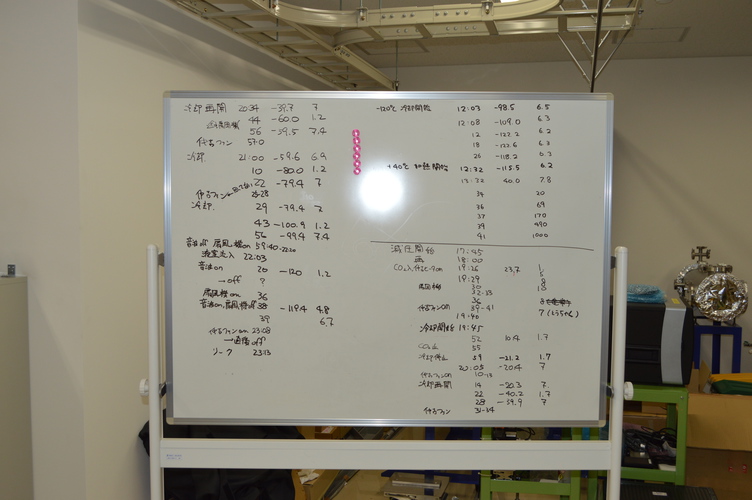 冷却再開 20:34 -39.7 7
44 -60.0 1.2
56 -59.5 7.4
代古ファン 57.0
冷却 21:00 -59.6 6.9
10 -80.0 1.2
22 -79.4 7
25-28
冷却 29 -79.4 7
43 -100.9 1.2
56 -99.4 7.4
扇風機on 59:40-22:20
22:03
20 -120 1.2
→off ?
扇風機on 36
38 -119.4 4.8
39 6.7
代古ファンon 23:08
off
リーク 23:13
-120℃ 冷却開始 12:03 -98.5 6.5
12:08 -109.0 6.3
12 -122.2 6.2
18 -122.6 6.3
26 -118.2 6.3
+40℃ 加熱開始 12:32 -115.5 6.2
13:32 40.0 7.8
34 20
36 69
37 170
39 490
41 1000
減圧開始 17:45
18:00
19:26 23.7 1
19:29 5
30 8
32-33 10
36
代古ファンon 39-41 7
19:40
冷却開始 19:45
52 10.4 1.7
CO₂止 55
冷却停止 59 -21.2 1.7
20:05 -20.4 7
代古ファンon 10-13
冷却再開 14 -20.3 7
22 -40.2 1.7
28 -39.9 7
代古ファン 31-34